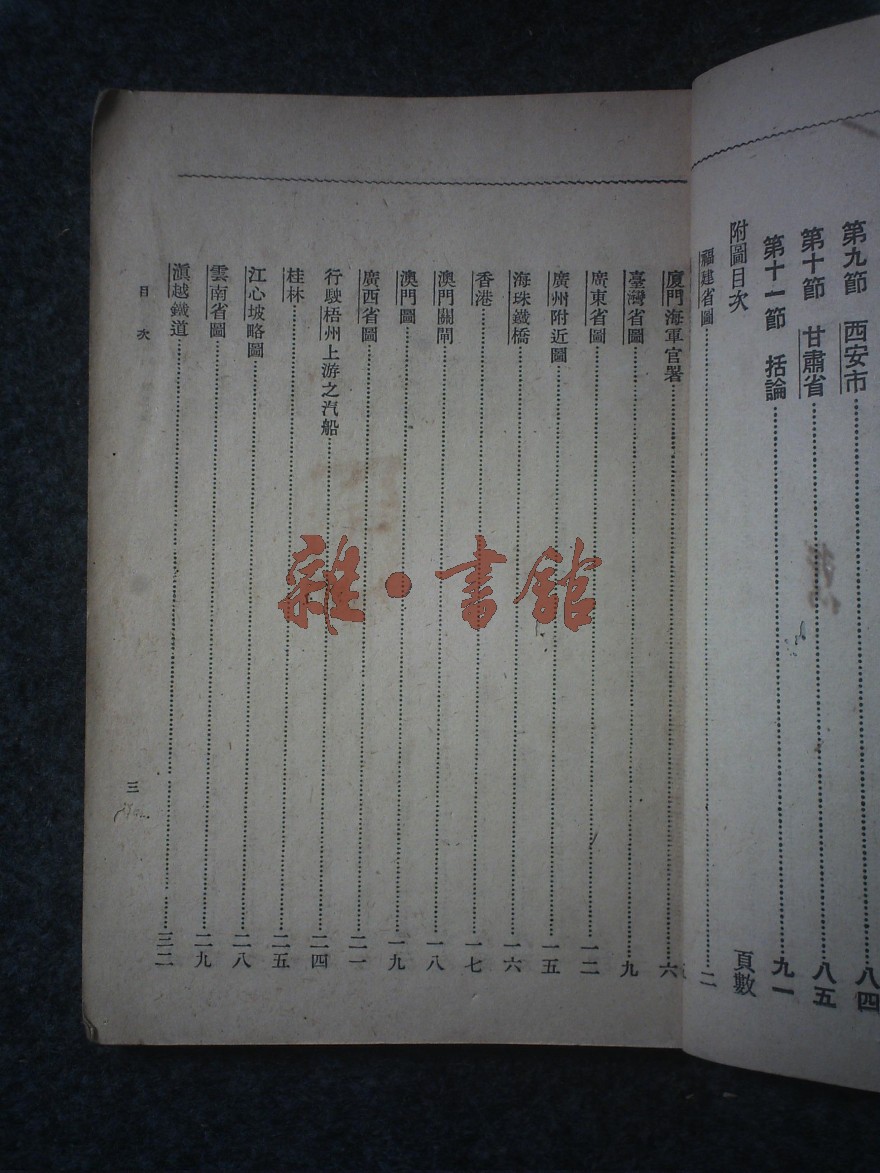 第九節　西安市……八四
第十節　甘肅省……八五
第十一節　括論……九一
附圖目次　頁數
福建省圖……二
廈門海軍官署……六
臺灣省圖……九
廣東省圖……一二
廣州附近圖……一五
海珠鐵橋……一六
香港……一七
澳門關閘……一八
澳門圖……一九
廣西省圖……二一
行駛梧州上游之汽船……二四
桂林……二五
江心坡略圖……二八
雲南省圖……二九
滇越鐵道……三二
目次　三
雜·書館